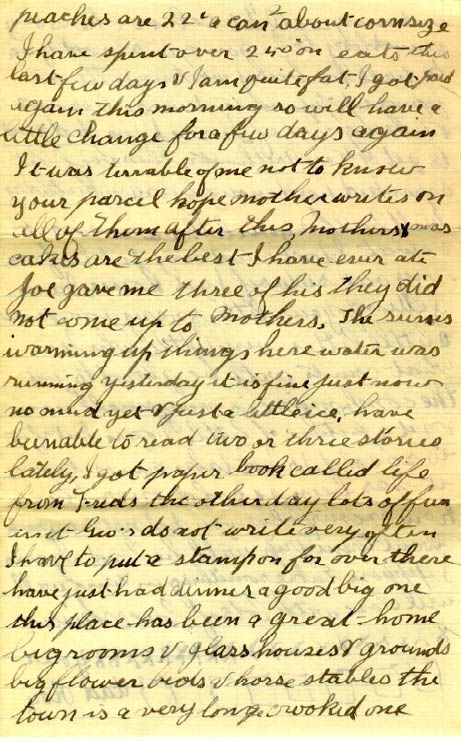 peaches are 22¢ a can about corn size
I have spent over 2 on eats this
last few days & I am quite fat, I got paid
again this morning so will have a
little change for a few days again
It was terrable of me not to know
your parcel hope mother writes on
all of them after this, Mothers xmas
cakes are the best I have ever ate
Joe gave me three of his they did
not come up to Mothers. The sun is
warming up things here water was
running yesterday it is fine just now
no mud yet & just a little ice, have
been able to read two or three stories
lately, I got paper book called life
from Freds the other day lots of fun
in it Geo's do not write very often
I have to put a stamp on for over there
have just had dinner a good big one
this place has been a great home
big rooms & glass houses & grounds
big flower beds & horse stables the
town is a very long crooked one